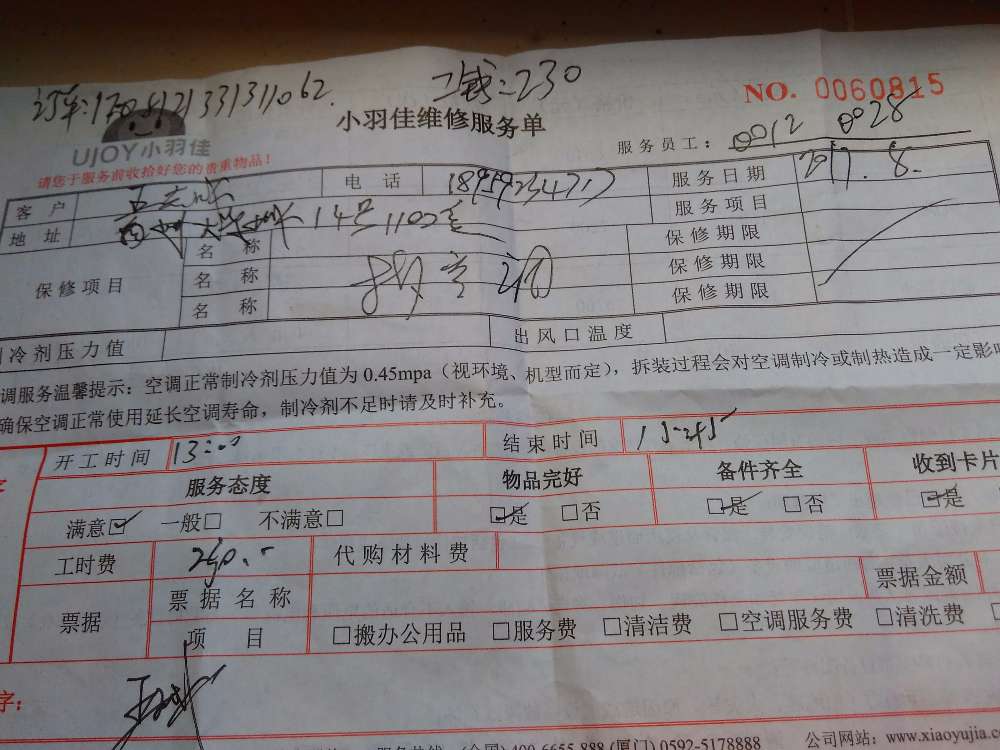 NO. 0060815
小羽佳维修服务单
UJOY小羽佳
请您于服务前收拾好您的贵重物品!
服务员工: 0012 0028
客户 电话 服务日期 2017.8.
地址 14号1102室 服务项目
保修项目 名称 保修期限
名称 保修期限
名称 保修期限
制冷剂压力值 出风口温度
调服务温馨提示:空调正常制冷剂压力值为0.45mpa(视环境、机型而定),拆装过程会对空调制冷或制热造成一定影响
确保空调正常使用延长空调寿命,制冷剂不足时请及时补充。
开工时间 13:00 结束时间 15:45
服务态度 物品完好 备件齐全 收到卡片
满意☑ 一般□ 不满意□ ☑是 □否 ☑是 □否 ☑是
工时费 代购材料费
票据 票据名称 票据金额
项目 □搬办公用品 □服务费 □清洁费 □空调服务费 □清洗费
字:
服务热线: (全国) 400-6655-888 (厦门) 0592-5178888 公司网站: www.xiaoyujia.c